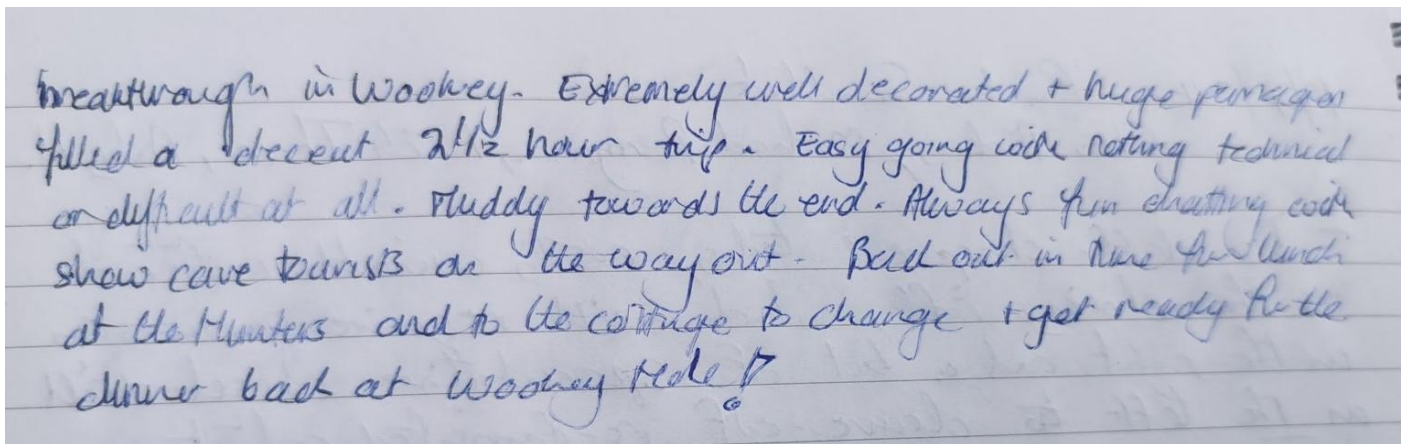 breakthrough in Wookey. Extremely well decorated + huge passages
filled a decent 2 1/2 hour trip. Easy going with nothing technical
or difficult at all. Muddy towards the end. Always fun chatting with
show cave tourists on the way out. Back out in time for lunch
at the Hunters and to the cottage to change + get ready for the
dinner back at Wookey Hole!